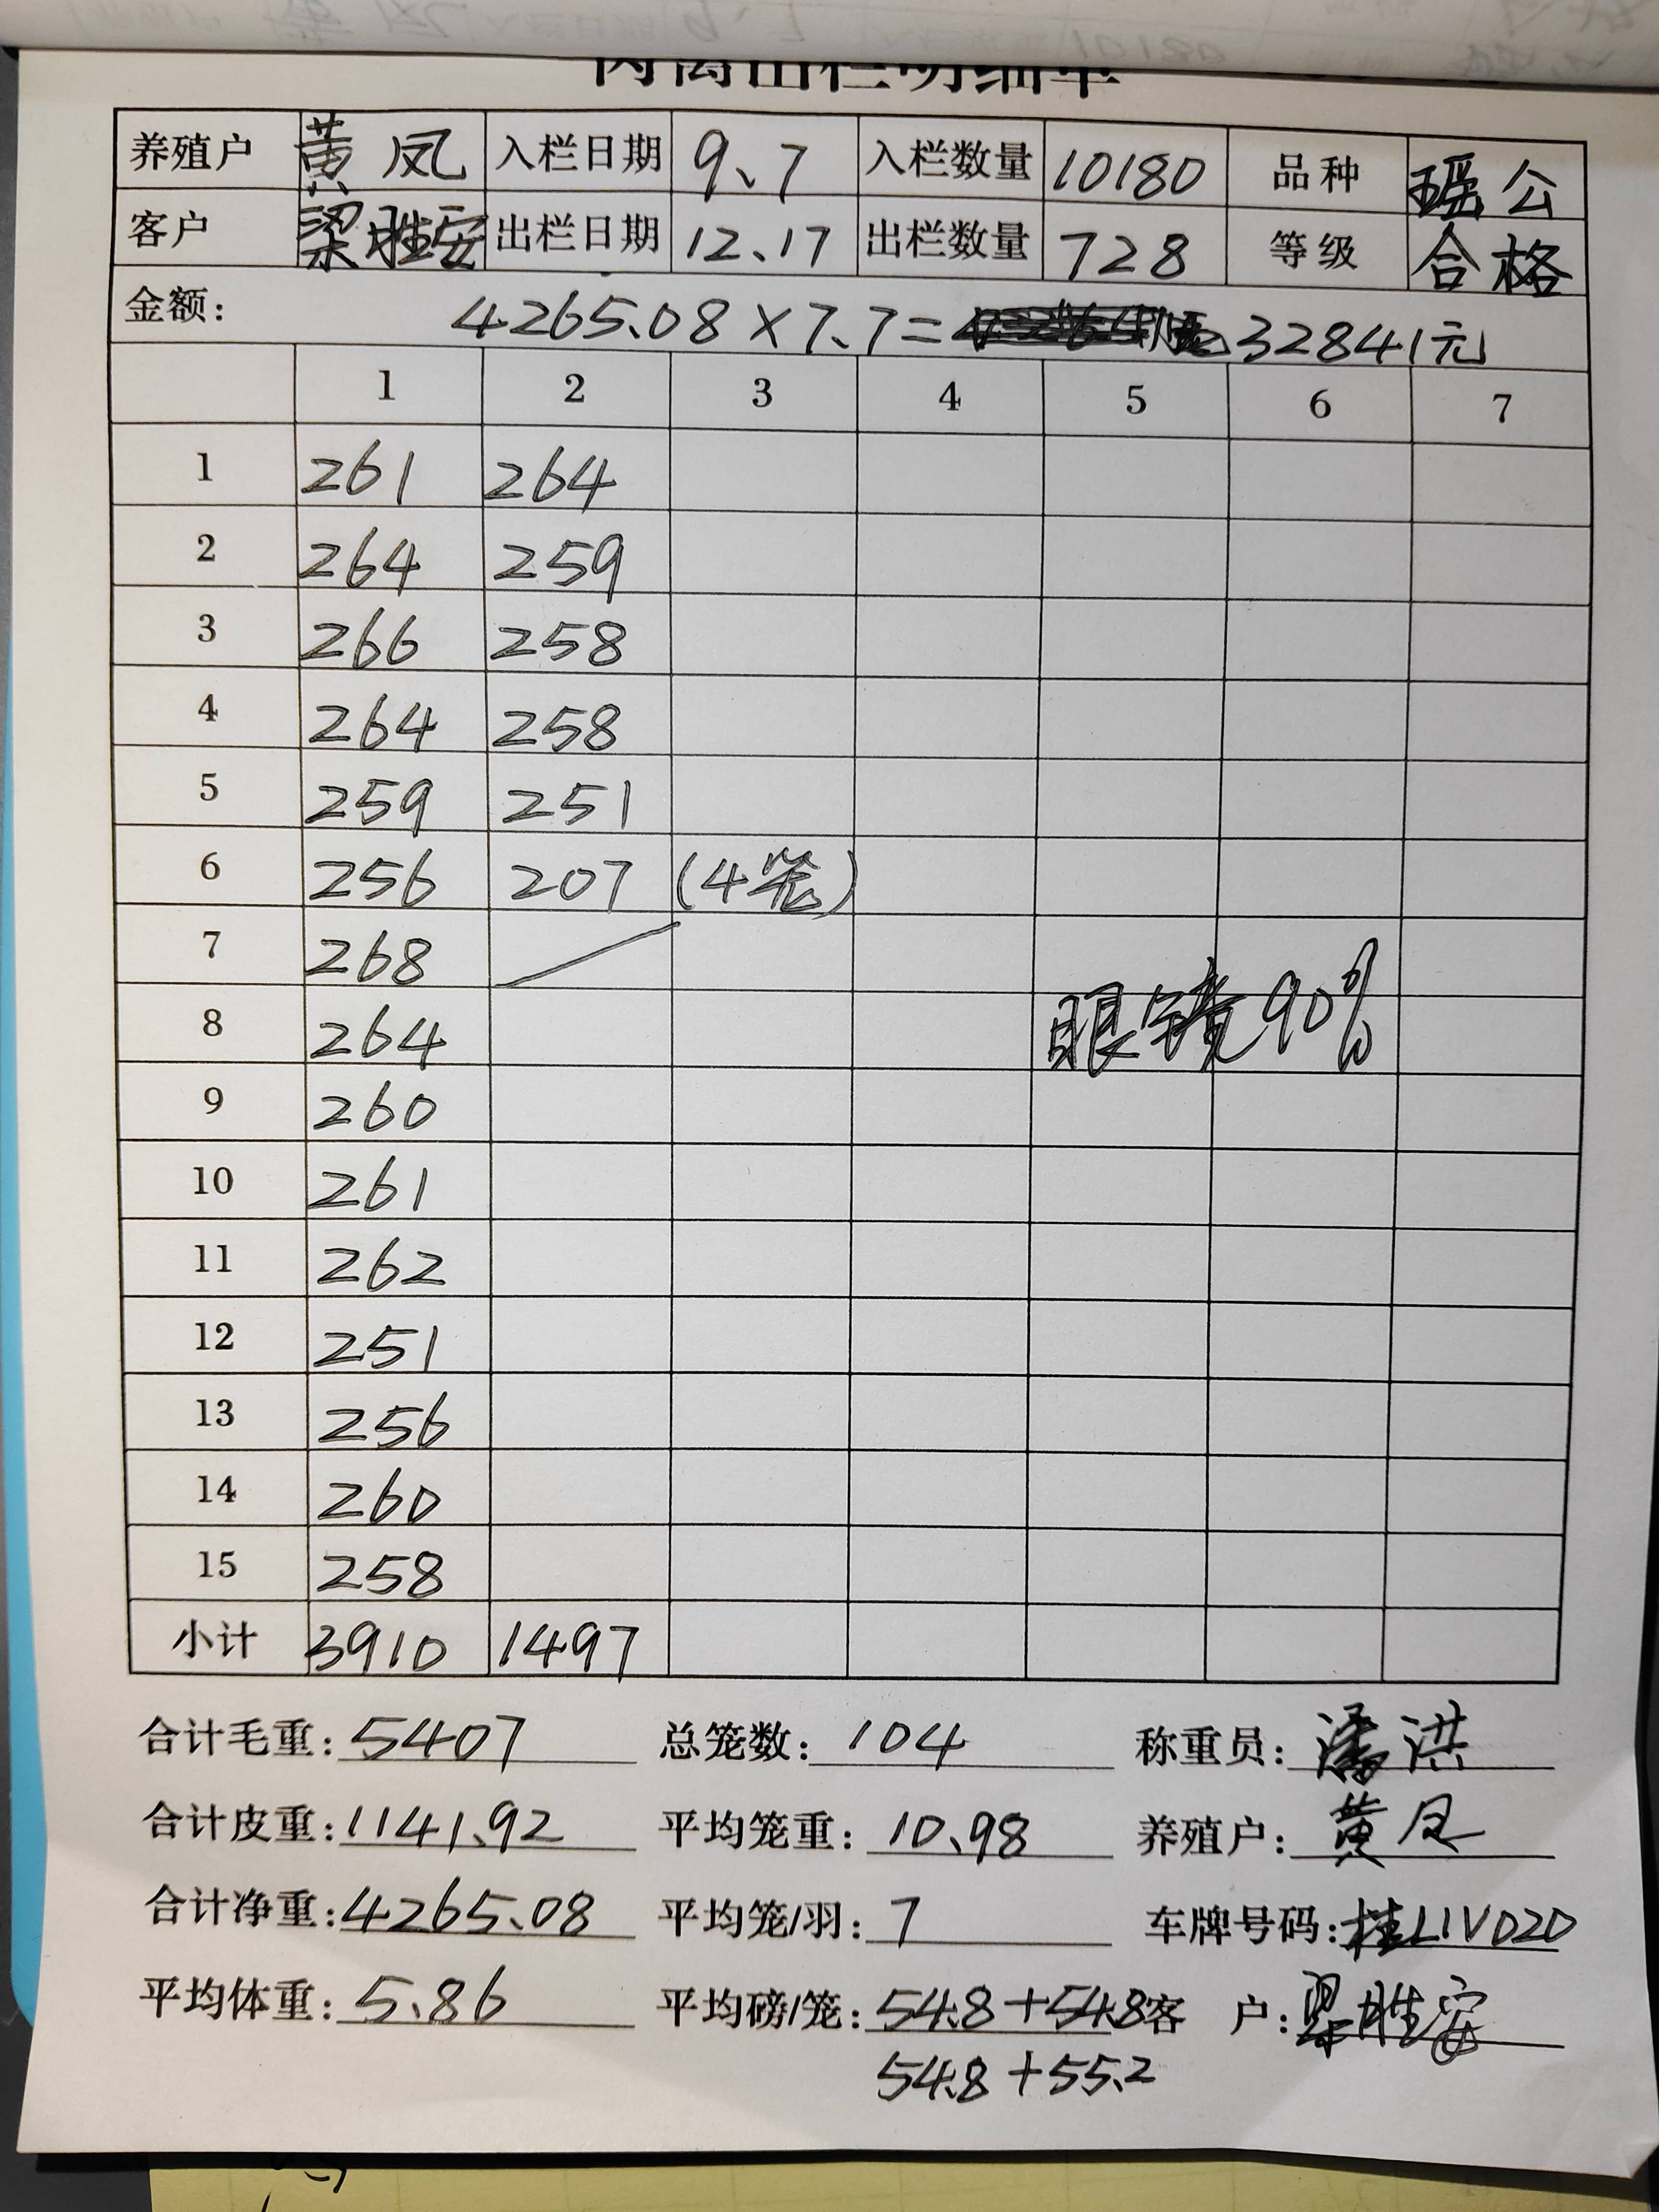 肉禽出栏明细单
养殖户 黄凤 入栏日期 9、7 入栏数量 10180 品种 瑶公
客户 梁胜安 出栏日期 12、17 出栏数量 728 等级 合格
金额: 4265.08×7.7= 32841元
1 2 3 4 5 6 7
1 261 264
2 264 259
3 266 258
4 264 258
5 259 251
6 256 207 (4笼)
7 268
8 264 眼镜90%
9 260
10 261
11 262
12 251
13 256
14 260
15 258
小计 3910 1497
合计毛重: 5407 总笼数: 104 称重员: 潘洪
合计皮重: 1141.92 平均笼重: 10.98 养殖户: 黄凤
合计净重: 4265.08 平均笼/羽: 7 车牌号码: 桂L1V020
平均体重: 5.86 平均磅/笼: 54.8+54.8 客 户: 梁胜安
54.8+55.2